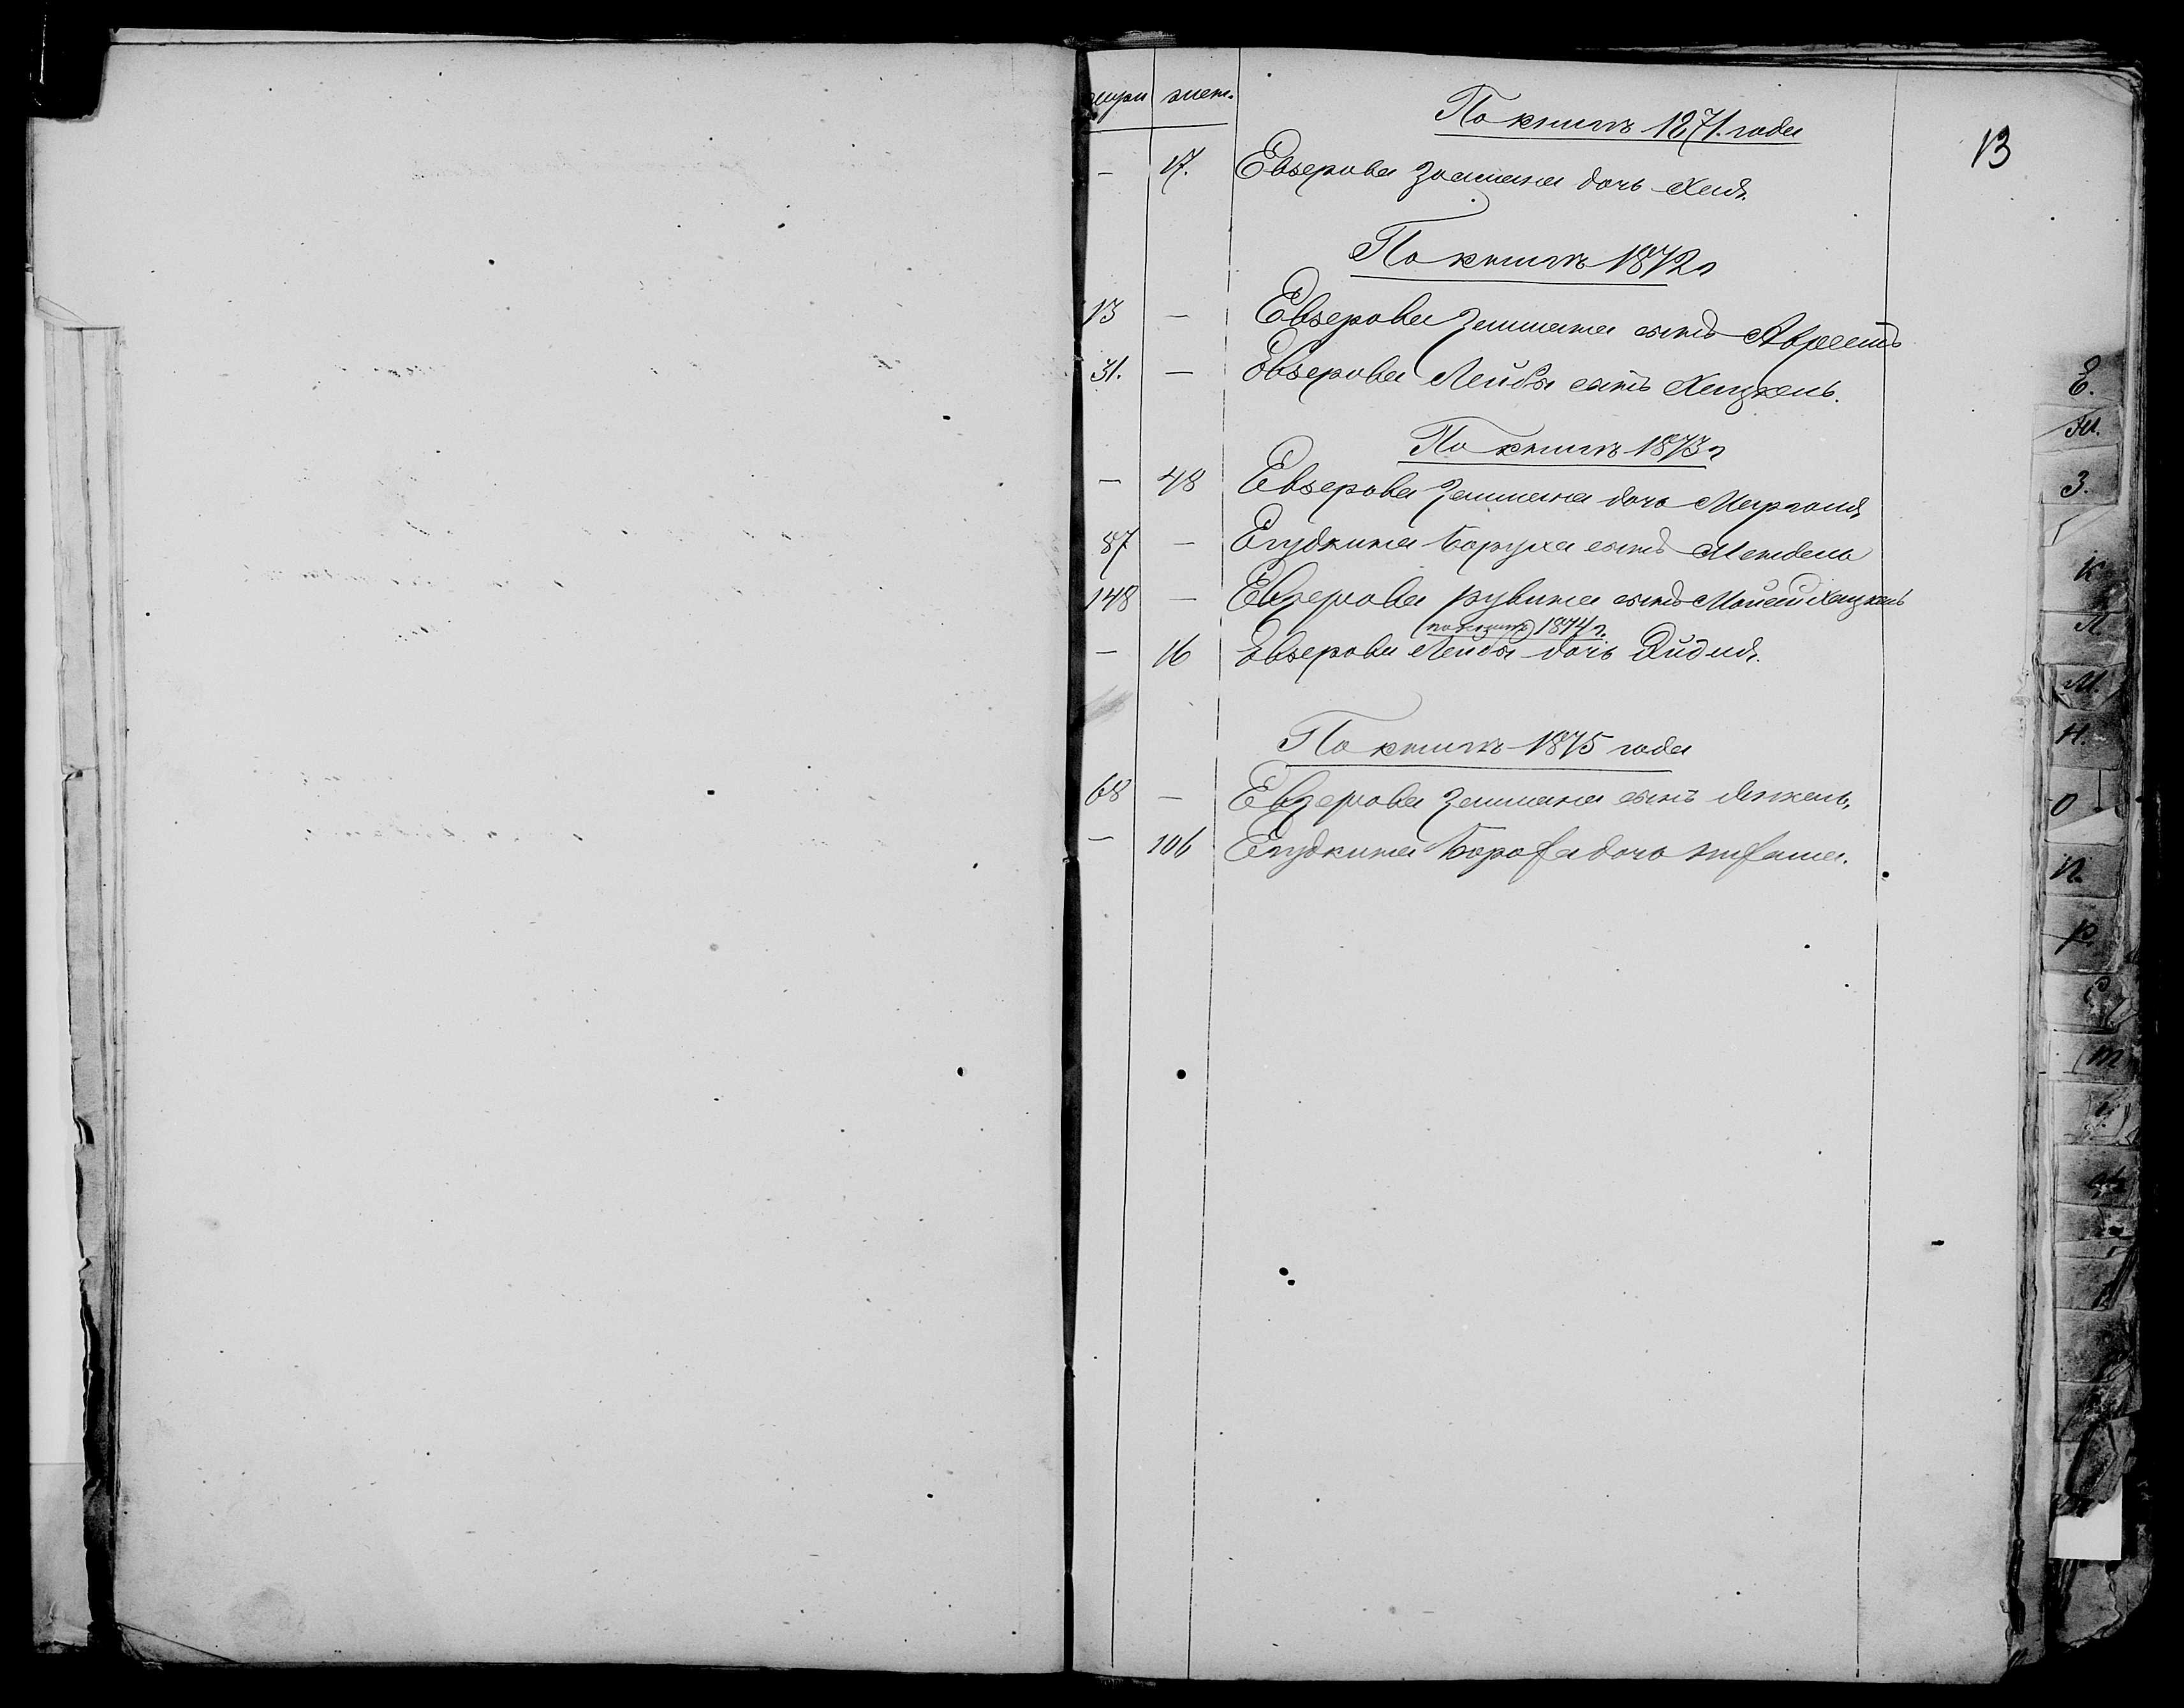 мужи жен.
13
По книгѣ 1871. года
— 17. Евзерова Залмана дочь Хая.
По книгѣ 1872 г
13 — Евзерова Залмана сынъ Авреемъ
31. — Евзерова Лейбы сынъ Хацкель.
По книгѣ 1873 г
— 48 Евзерова Залмана дочь Маргаля
87 — Егудкина Боруха сынъ Мендель
148 — Евзерова Рувина сынъ Мойсей Хацкель
по книгѣ 1874 г.
— 16 Евзерова Лейбы дочь Эйдля.
По книгѣ 1875 года
68 — Евзерова Залмана сынъ Янкель.
— 106 Егудкина Дочь
Е.
Ж.
З.
К
Л.
М.
Н.
О
П.
Р.
С
Т